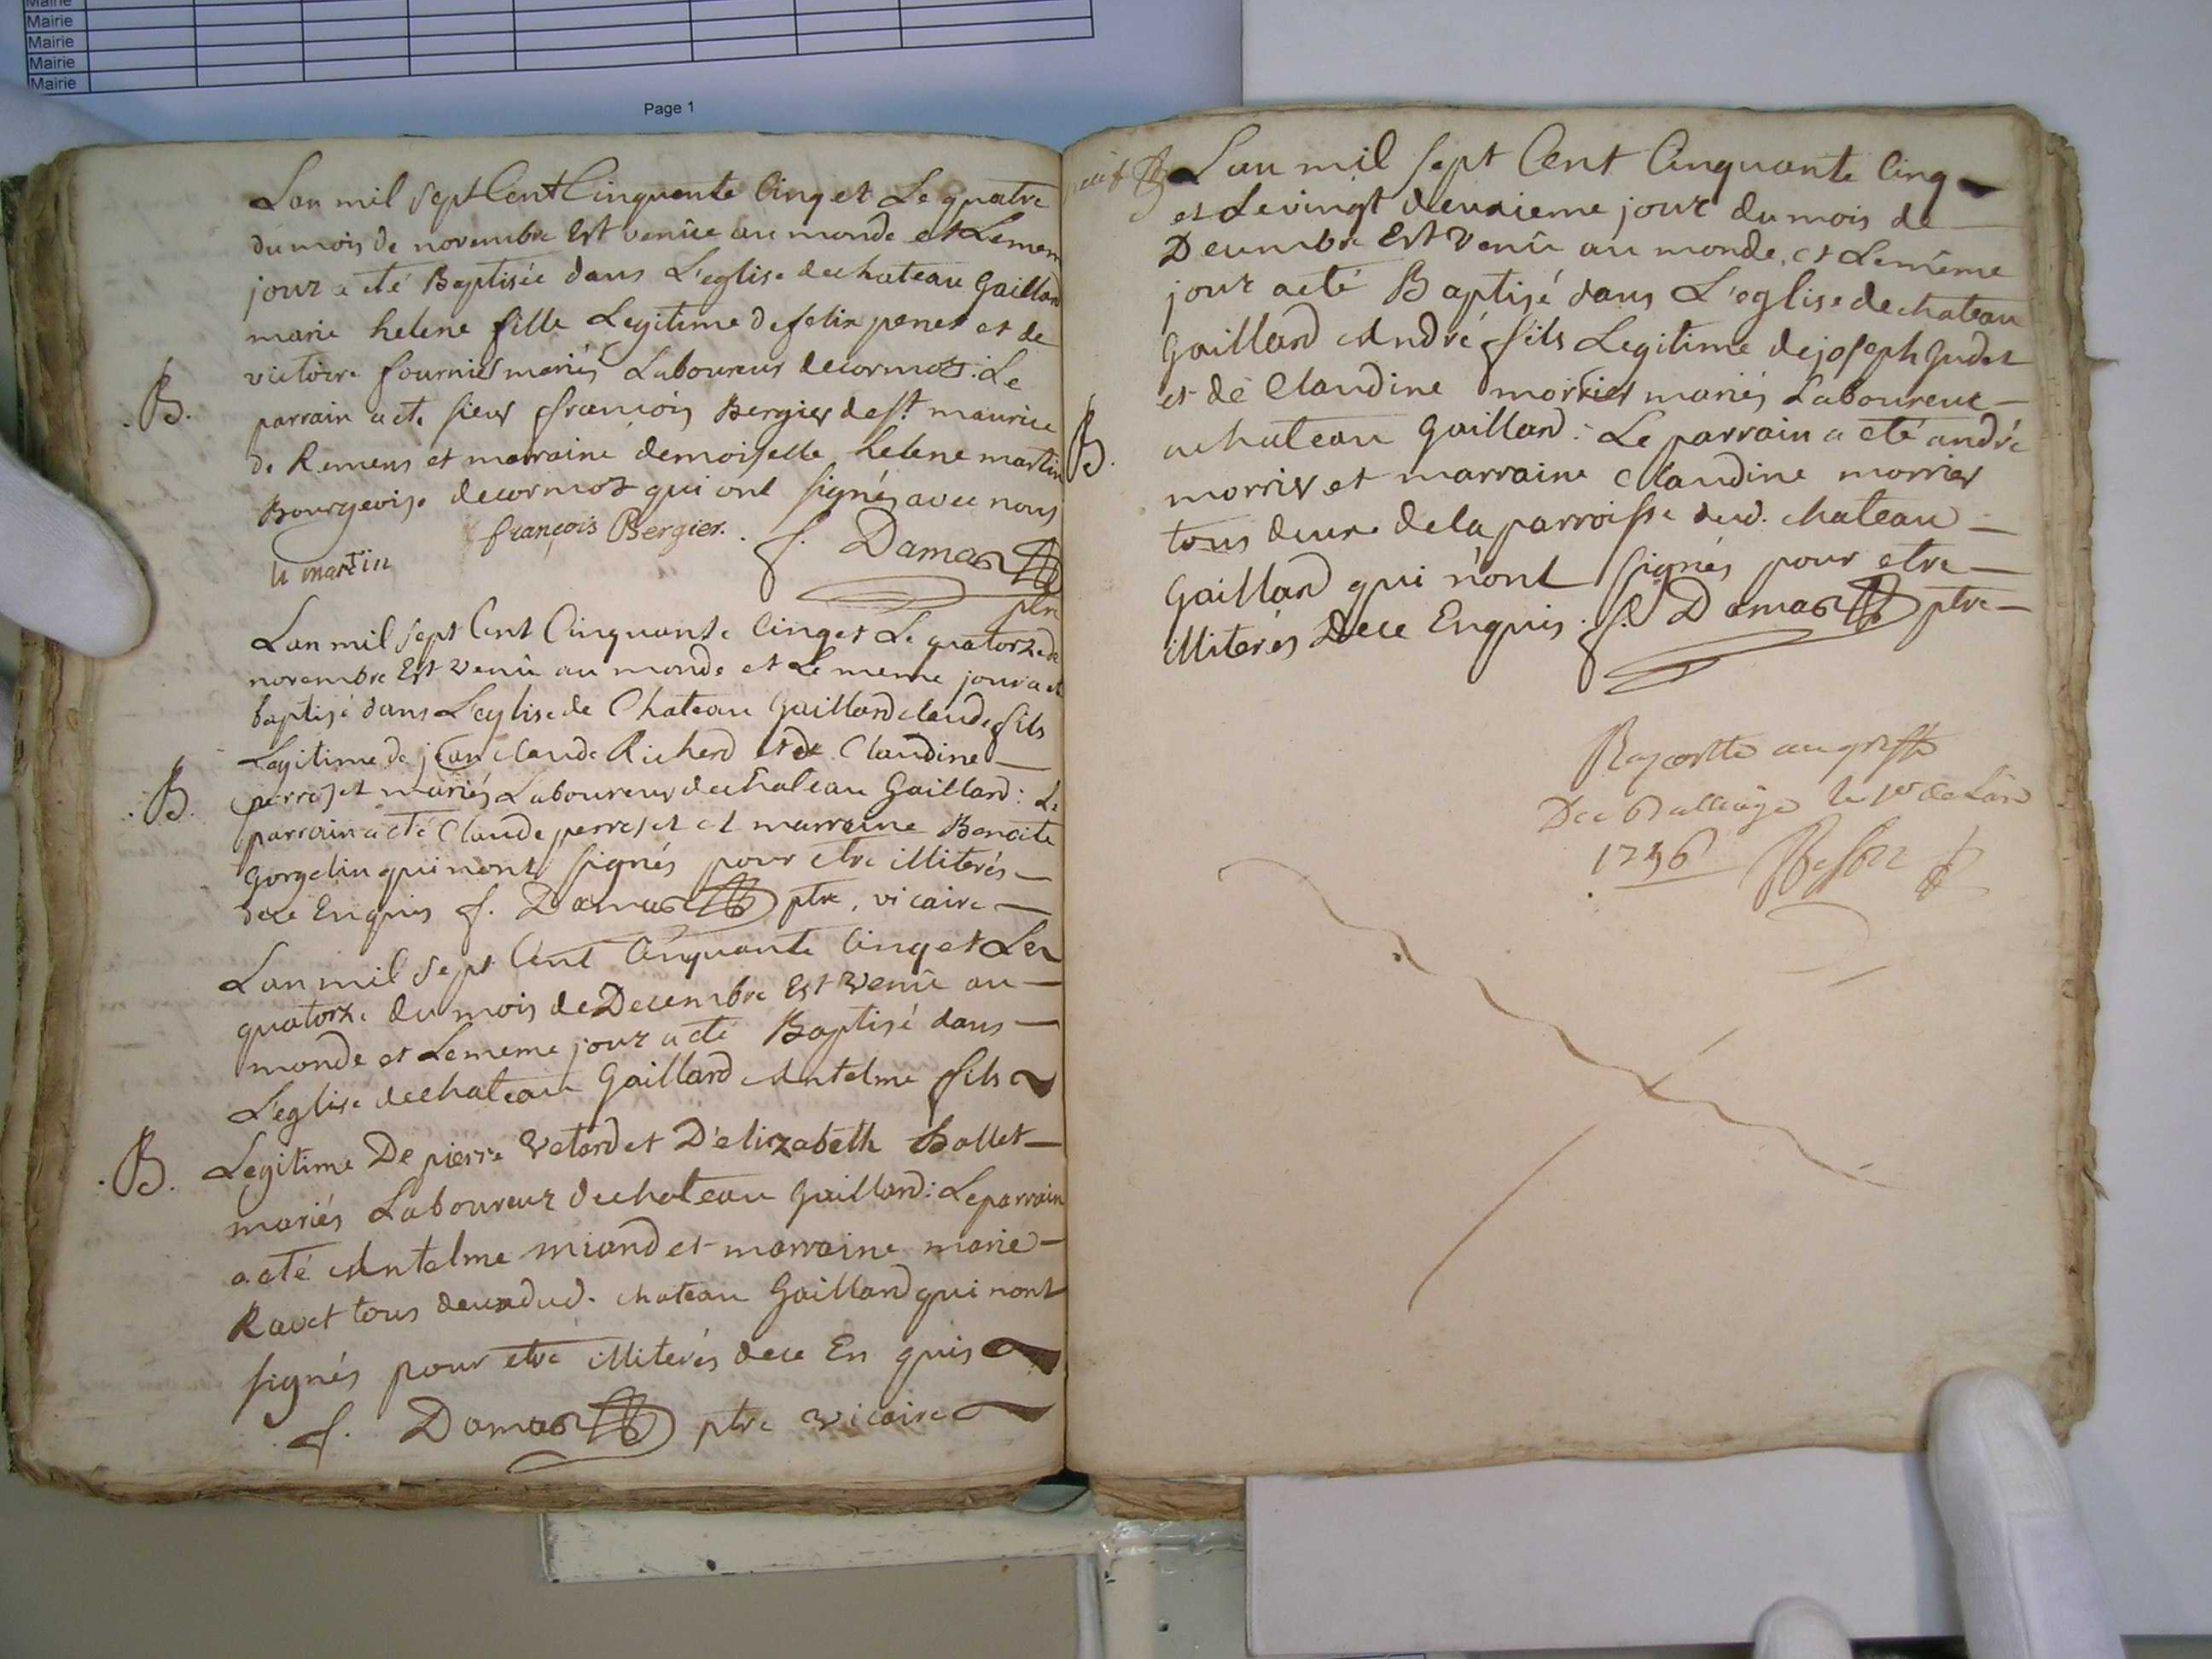 Mairie
Mairie
Mairie
Mairie
Mairie
Page 1
Lan mil sept Cent Cinquante Cinq et Le quatre
du mois de novembre Est venûe au monde et Le mem
jour a eté Baptisée dans L'eglise de chateau Gaillard
marie helene fille Legitime de felix penet et de
victoire fournier mariés Laboureur de cormoz : Le
B. parrain a eté sieur françois Bergier de st. maurice
de Remens et marraine demoiselle helene martin
Bourgeoise de cormoz qui ont signés avec nous
françois Bergier. f. Damas
h martin
ptre
Lan mil sept Cent Cinquante Cinq et Le quatorze de
novembre Est venû au monde et Le meme jour a eté
baptisé dans L'eglise de Chateau Gaillard claude fils
Legitime de jean claude Richerd et de Claudine
B. perroset mariés Laboureur de chateau Gaillard : Le
parrain a eté Claude perroset et marraine Benoite
Gorgelin qui nont signés pour etre illiterés
de ce Enquis f. Damas ptre, vicaire
Lan mil sept Cent Cinquante Cinq et Le
quatorze du mois de Decembre Est venû au
monde et Le meme jour a eté Baptisé dans
L'eglise de chateau Gaillard Antelme fils
B. Legitime De pierre Vetard et D'elizabeth Bollet
mariés Laboureur de chateau Gaillard : Le parrain
a eté Antelme miand et marraine marie
Ravet tous deux dud. chateau Gaillard qui nont
signés pour etre illiterés de ce En quis
f. Damas ptre vicaire
Lan mil sept Cent Cinquante Cinq
et Le vingt deuxieme jour du mois de
Decembre Est Venû au monde, et Le même
jour a eté Baptisé dans L'eglise de chateau
Gaillard André fils Legitime de joseph Judet
et de Claudine morrier mariés Laboureur
B. a chateau Gaillard : Le parrain a eté andré
morrier et marraine Claudine morrier
tous deux de la parroisse dud. chateau
Gaillard qui n'ont signés pour etre
illiterés De ce Enquis. f. Damas ptre
au greffe
Du Balliage le 1er de Lan
1756